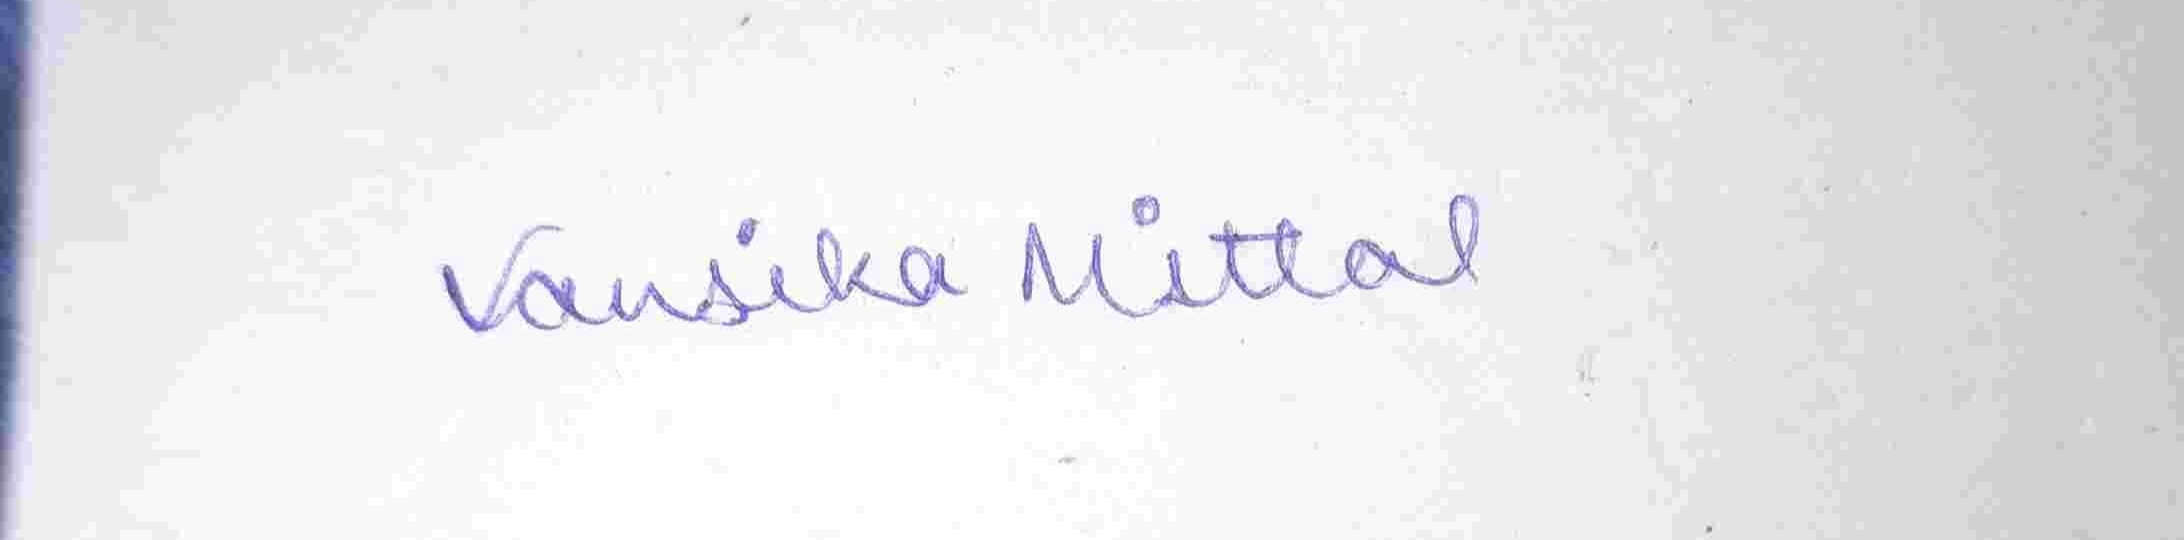 Vansika Mittal